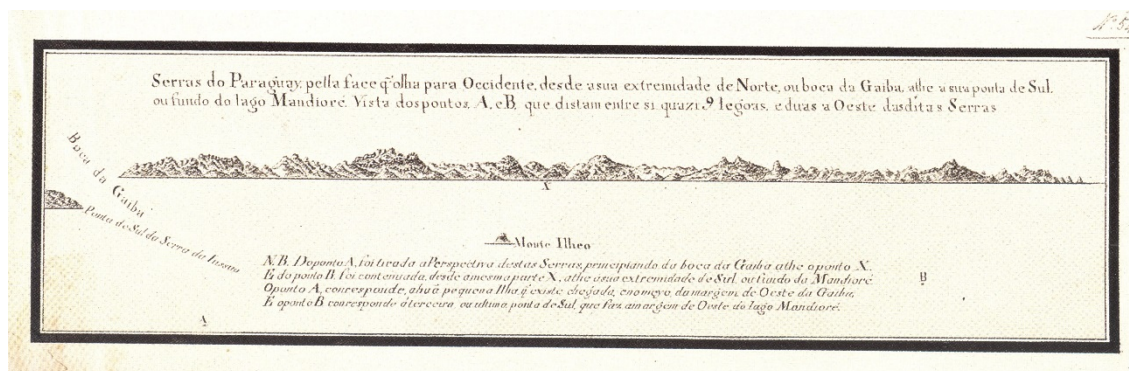 Nº 5
Serras do Paraguay, pella face q' olha para Occidente, desde a sua extremidade de Norte, ou boca da Gaiba, athe a sua ponta de Sul,
ou fundo do lago Mandioré. Vista dos pontos, A, e B, que distam entre si quazi 9 legoas, e duas a Oeste das ditas Serras
Boca da Gaiba
X
Ponta de Sul da Serra da
Monte Ilheo
N.B. Do ponto A, foi tirada a Perspectiva destas Serras, principiando da boca da Gaiba athe o ponto X.
E do ponto B foi contenuada, desde a mesma parte X, athe a sua extremidade de Sul, ou fundo da Mandioré
O ponto A, conresponde, a huã pequena Ilha, q' existe chegada, e no meyo, da margem de Oeste da Gaiba,
E o ponto B conresponde á terceira ou ultima, ponta de Sul, que faz a margem de Oeste do lago Mandioré.
B
A